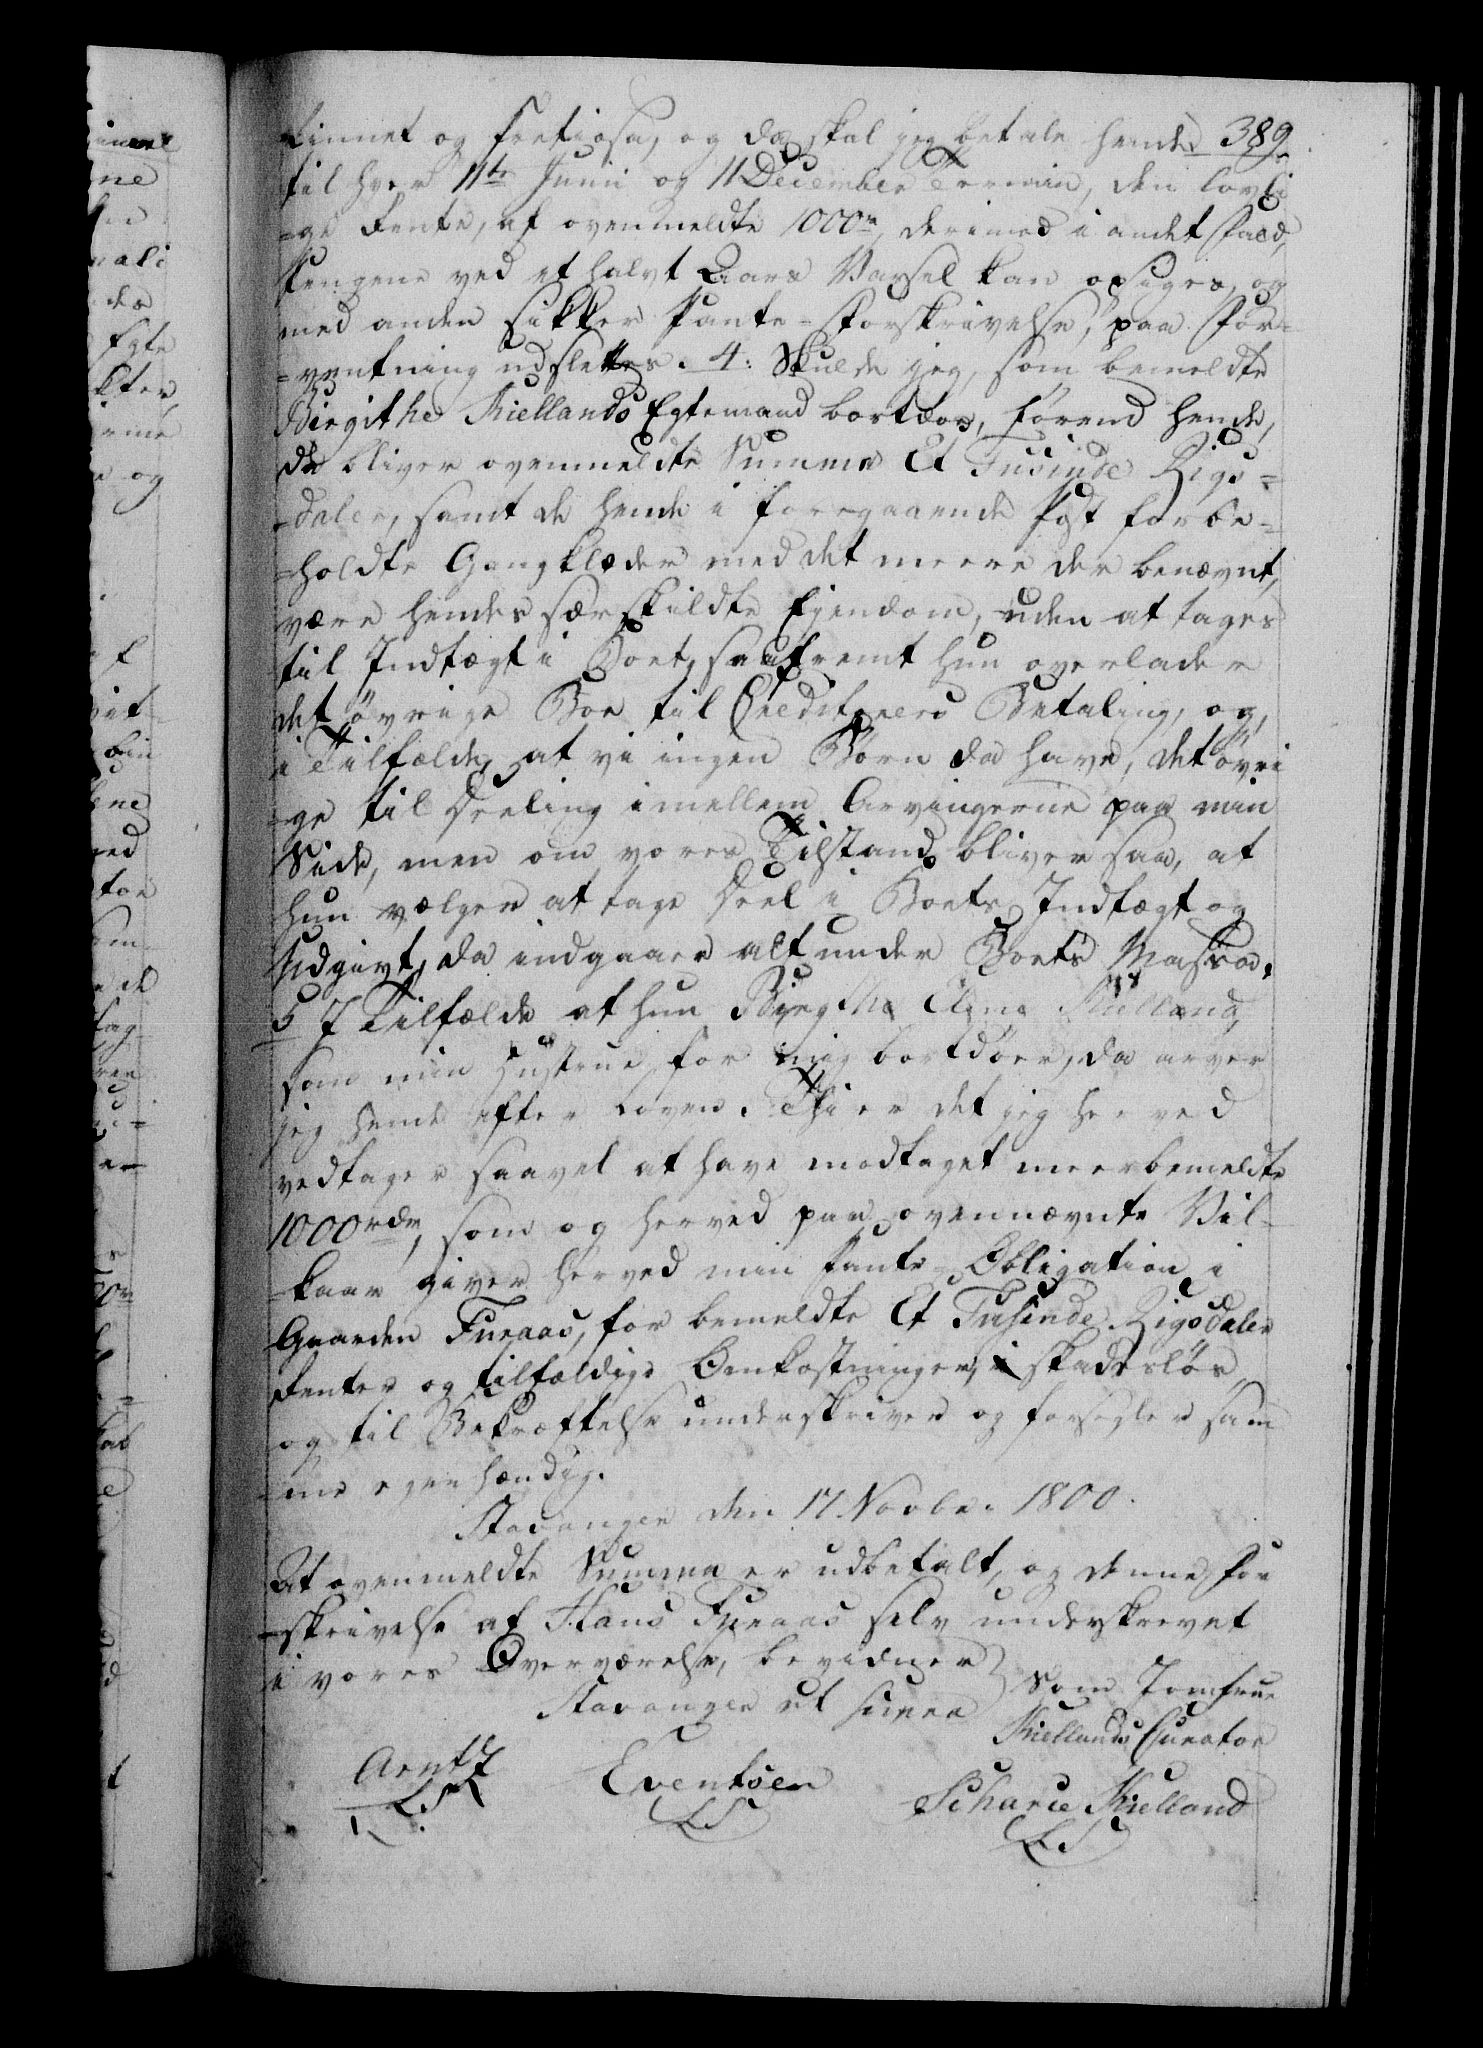 Linnet og Pretiosa, og da skal jeg betale hende 389.
til hver 11te Junii og 11 December Termin, den lovli
-ge Rente, af ovenmeldte 1000rd, derimod i andet Fald,
Pengene ved et halvt Aars Varsel kan opsiges, og
med anden sikker Pante-Forskrivelse, paa For-
-ventning udslettes. 4: Skulde jeg, som bemeldte
Birgithe Kiellands Egtemand bortdøe, førend hende,
da bliver ovenmeldte Summa Et Tusinde Rigs-
-daler, samt de hende i foregaaende Post forbe-
-holdte Gangklæder med det meere der benævnt,
være hendes særskildte Ejendom, uden at tages
til Indtægt i Boet, saafremt hun overlader
det øvrige Boe til Creditorers Betaling, og,
i Tilfælde, at vi ingen Børn da have, det øvri
-ge til Deeling imellem Arvingerne paa min
Side, men om vores Tilstand bliver saa, at
hun vælger at tage Deel i Boets Indtægt og
Udgivt, da indgaaer alt under Boets Massa.
5 I Tilfælde at hun Birgitha Elena Kielland,
som min Hustrue før mig bortdøer, da arver
jeg hende efter Loven. Thi er det jeg her ved
vedtager saavel at have modtaget meerbemeldte
1000rdr, som og herved paa ovennævnte Vil-
-kaar giver herved min Pante-Obligation i
Gaarden Furaas, for bemeldte Et Tusinde Rigsdaler
Renter og tilfældige Omkostninger, skadesløs,
og til Bekræftelse underskriver og forsegler sam
-me egenhændig.
Stavanger den 17 Novbr. 1800.
At ovenmeldte Summa er udbetalt, og denne For
-skrivelse af Hans Furaas selv underskrevet
i vores Overværelse, bevidner
Stavanger ut supra
Som Jomfrue
Kiellands Curator
Arentz Eventsen Scharie Kielland
LS LS LS